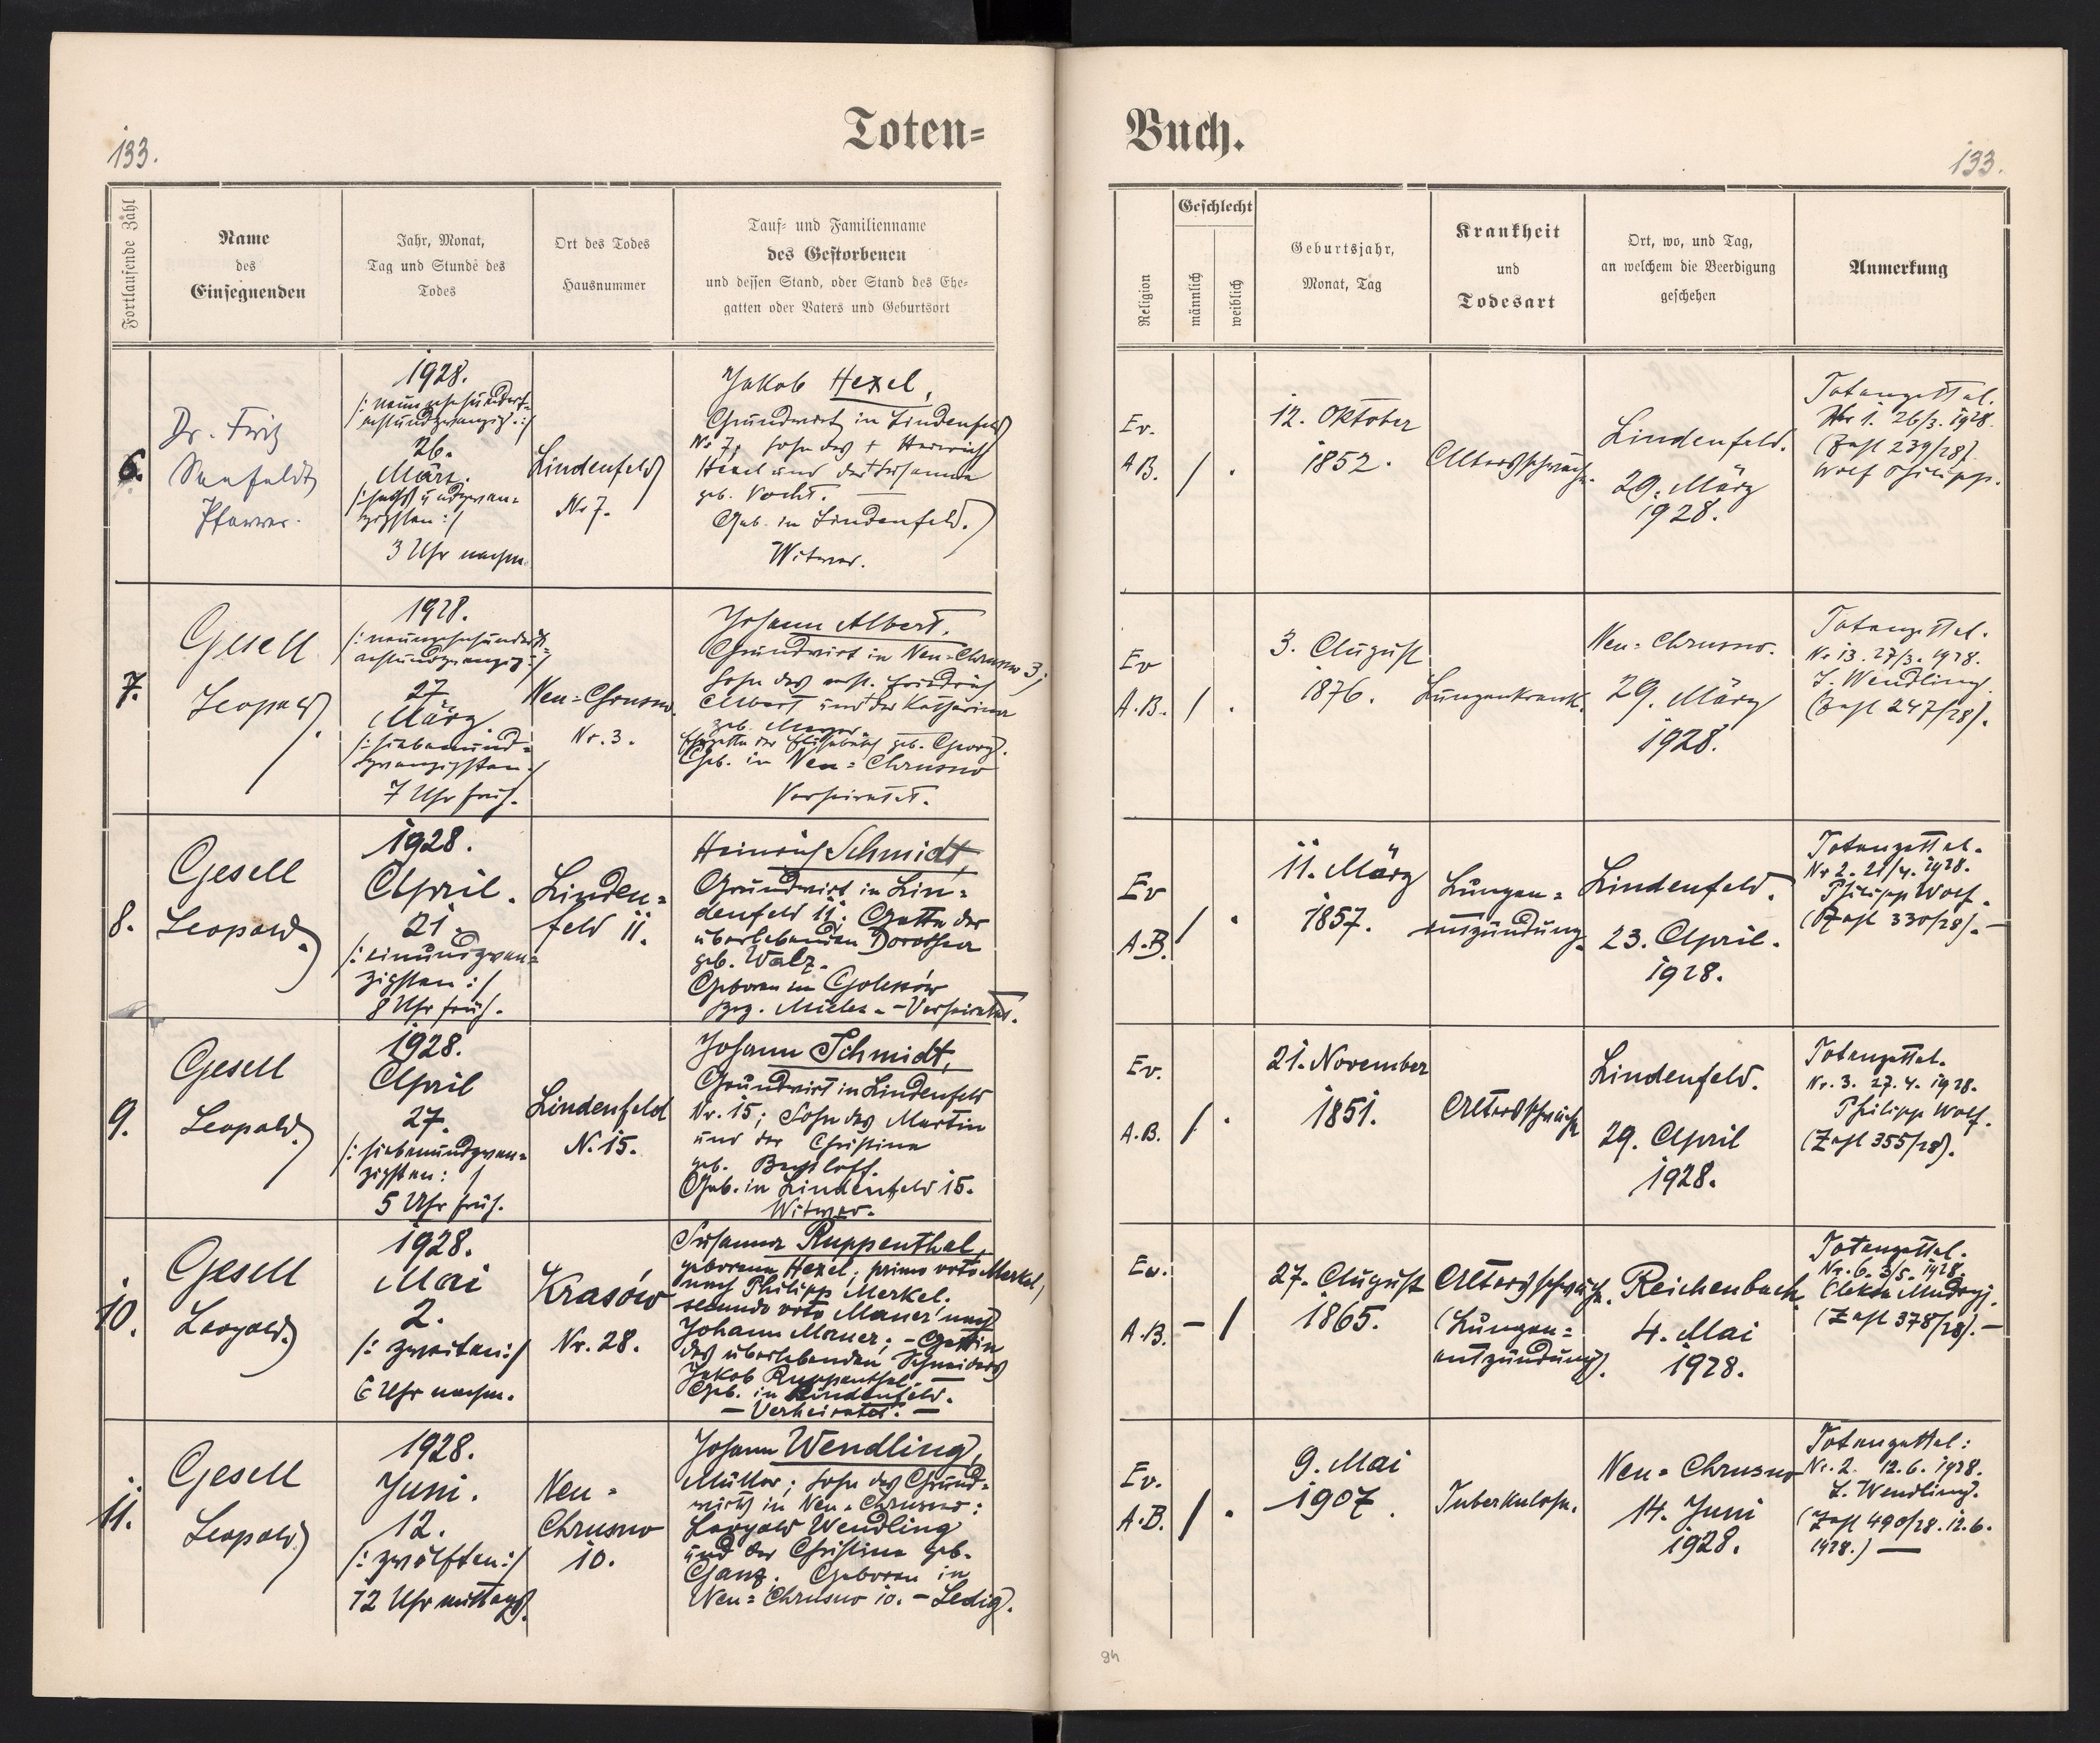 133.
Toten=
Fortlaufende Zahl
Name
des
Einsegnenden
Jahr, Monat,
Tag und Stunde des
Todes
Ort des Todes
Hausnummer
Tauf= und Familienname
des Gestorbenen
und dessen Stand, oder Stand des Ehe=
gatten oder Vaters und Geburtsort
6.
Dr. Fritz
Seefeldt
Pfarrer.
1928.
/: neunzehnhundert=
achtundzwanzig :/
26.
März.
/: sechsundzwan=
zigsten :/
3 Uhr nachm.
Lindenfeld
Nr 7.
Jakob Hexel,
Grundwirt in Lindenfeld
Nr 7, Sohn des + Heinrich
Hexel und der + Susanna
geb. Vocht. —
Geb. in Lindenfeld.
Witwer.
7.
Gesell
Leopold.
1928.
/: neunzehnhundert=
achtundzwanzig :/
27.
März
/: siebenund=
zwanzigsten :/
7 Uhr früh.
Neu=Chrusno.
Nr. 3.
Johann Albert.
Grundwirt in Neu=Chrusno 3;
Sohn des verst. Friedrich
Albert und der Katharina
geb. Mayer.
Ehegatte der Elisabeth geb. Georg.
Geb. in Neu=Chrusno
Verheiratet.
8.
Gesell
Leopold.
1928.
April.
21.
/: einundzwan=
zigsten :/
8 Uhr früh.
Linden=
feld 11.
Heinrich Schmidt,
Grundwirt in Lin=
denfeld 11; Gatte der
überlebenden Dorothea
geb. Walz.
Geboren in Goleszów
Bez. Mielec. – Verheiratet.
9.
Gesell
Leopold.
1928.
April
27.
/: siebenundzwan=
zigsten : /
5 Uhr früh.
Lindenfeld
N. 15.
Johann Schmidt,
Grundwirt in Lindenfeld
Nr. 15; Sohn des Martin
und der Christine
geb.
Geb. in Lindenfeld 15.
Witwer.
10.
Gesell
Leopold.
1928.
Mai
2.
/: zweiten :/
6 Uhr nachm.
Krasów
Nr. 28.
Susanna Ruppenthal,
geborene Hexel; primo voto Merkel,
nach Philipp Merkel.
secundo voto Mauer nach
Johann Mauer; – Gattin
des überlebenden Schneiders
Jakob Ruppenthal.
Geb. in Lindenfeld.
— Verheiratet. —
11.
Gesell
Leopold.
1928.
Juni.
12.
/: zwölften :/
12 Uhr mittags.
Neu=
Chrusno
10.
Johann Wendling,
Müller; Sohn des Grund=
wirts in Neu=Chrusno:
Leopold Wendling
und der Christine geb.
Ganz. Geboren in
Neu=Chrusno 10. – Ledig.
Buch.
133.
Religion
Geschlecht
männlich
weiblich
Geburtsjahr,
Monat, Tag
Krankheit
und
Todesart
Ort, wo, und Tag,
an welchem die Beerdigung
geschehen
Anmerkung
Ev.
A.B.
/ .
12. Oktober
1852.
Altersschwäche.
Lindenfeld.
29. März
1928.
Totenzettel.
Nr 1. 26/3. 1928.
(Zahl 239/28).
Wolf Philipp.
Ev
A.B.
/ .
3. August
1876.
Lungenkrank.
Neu=Chrusno.
29. März
1928.
Totenzettel.
Nr 13. 27/3. 1928.
J. Wendling
(Zahl 247/28).
Ev
A.B.
/ .
11. März
1857.
Lungen=
entzündung.
Lindenfeld.
23. April.
1928.
Totenzettel.
Nr 2. 21/4. 1928.
Philipp Wolf.
(Zahl 330/28). —
Ev.
A.B.
/ .
21. November
1851.
Altersschwäche
Lindenfeld.
29. April
1928.
Totenzettel.
Nr. 3. 27. 4. 1928.
Philipp Wolf.
(Zahl 355/28).
Ev.
A.B.
– /
27. August
1865.
Altersschwäche.
(Lungen=
entzündung).
Reichenbach.
4. Mai
1928.
Totenzettel.
Nr. 6. 3/5. 1928.
Oleksa Mudryj.
(Zahl 378/28). —
Ev.
A.B.
/ .
9. Mai
1907.
Tuberkulose.
Neu=Chrusno
14. Juni
1928.
Totenzettel:
Nr. 2. 12. 6. 1928.
J. Wendling.
(Zahl 490/28. 12. 6.
1928.) —
94